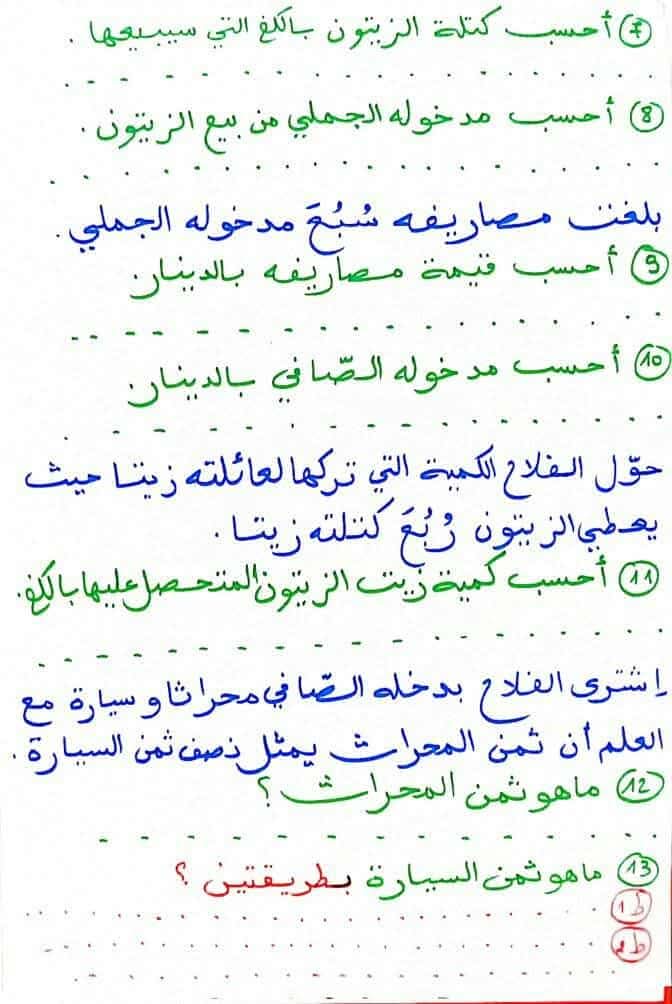 7 أحسب كتلة الزيتون بالكغ التي سيبيعها .
8 أحسب مدخوله الجملي من بيع الزيتون .
بلغت مصاريفه سُبُعَ مدخوله الجملي .
9 أحسب قيمة مصاريفه بالدينار
10 أحسب مدخوله الصّافي بالدينار
حوّل الفلاح الكمية التي تركها لعائلته زيتا حيث
يعطي الزيتون رُبُعَ كتلته زيتا .
11 أحسب كمية زيت الزيتون المتحصل عليها بالكغ .
إشترى الفلاح بدخله الصّافي محراثا وسيارة مع
العلم أن ثمن المحراث يمثل نصف ثمن السيارة .
12 ماهو ثمن المحراث ؟
13 ماهو ثمن السيارة بطريقتين ؟
ط1
ط2